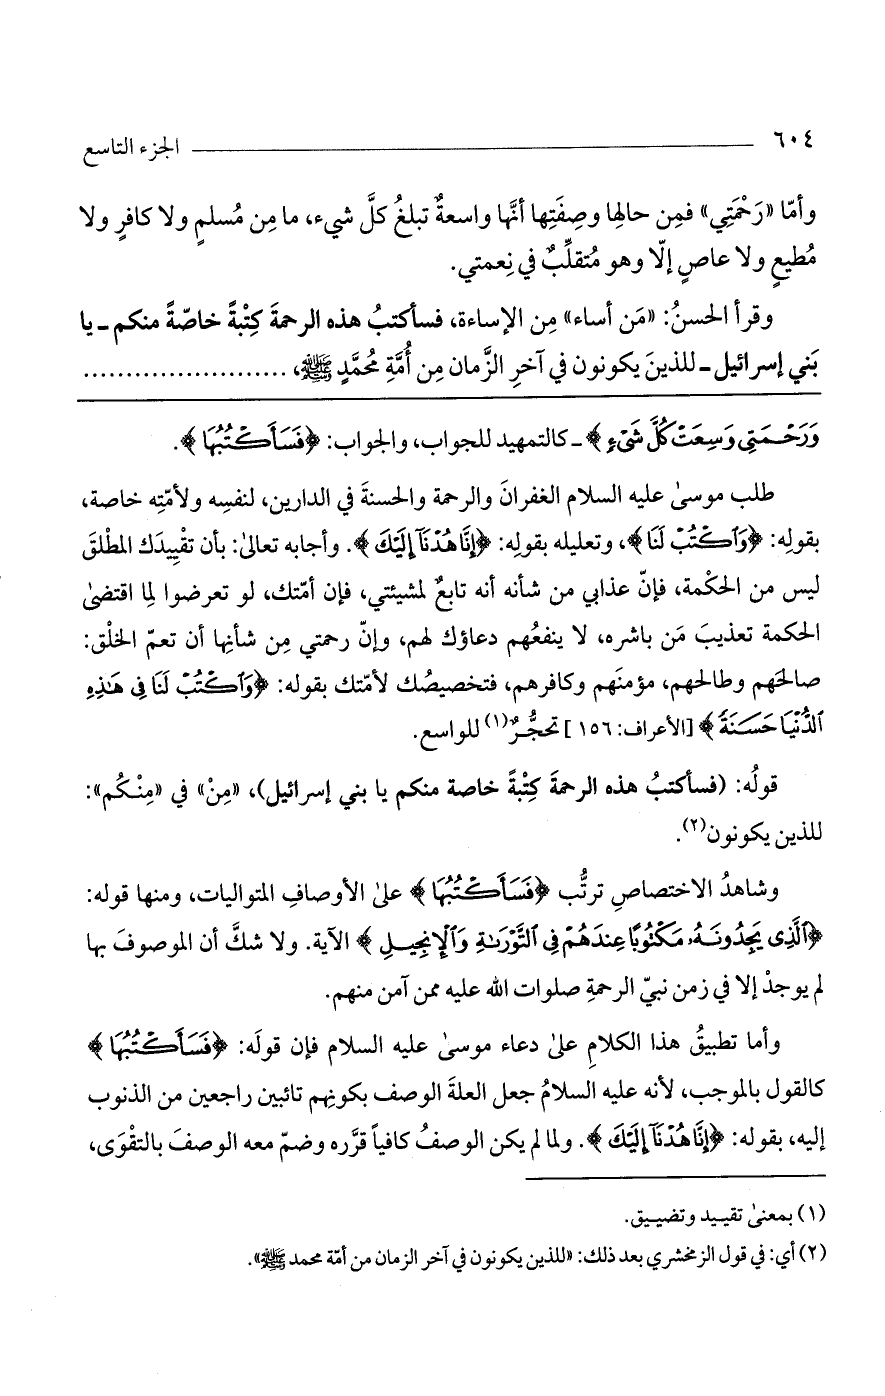 ٦٠٤ الجزء التاسع
وأمّا «رَحْمَتِي» فمِن حالِها وصِفَتِها أنَّها واسعةٌ تبلغُ كلَّ شيء، ما مِن مُسلمٍ ولا كافرٍ ولا
مُطيعٍ ولا عاصٍ إلّا وهو مُتقلِّبٌ في نِعمتي.
وقرأ الحسنُ: «مَن أساء» مِن الإساءة، فسأكتبُ هذه الرحمةَ كِتْبةً خاصّةً منكم ـ يا
بَني إسرائيل ـ للذينَ يكونون في آخرِ الزَّمان مِن أُمَّةِ مُحمَّدٍ ﷺ، ........................
وَرَحْمَتِى وَسِعَتْ كُلَّ شَىْءٍ ﴾ ـ كالتمهيد للجواب، والجواب: ﴿فَسَأَكْتُبُهَا﴾.
طلب موسىٰ عليه السلام الغفرانَ والرحمة والحسنةَ في الدارين، لنفسِه ولأمّتِه خاصة،
بقولِه: ﴿وَٱكْتُبْ لَنَا﴾، وتعليله بقولِه: ﴿إِنَّا هُدْنَآ إِلَيْكَ﴾. وأجابه تعالىٰ: بأن تقْييدَك المطْلقَ
ليس من الحكْمة، فإنّ عذابي من شأنه أنه تابعٌ لمشيئتي، فإن أمّتك، لو تعرضوا لِما اقتضىٰ
الحكمة تعذيبَ مَن باشره، لا ينفعُهم دعاؤك لهم، وإنّ رحمتي مِن شأنِها أن تعمّ الخلْق:
صالحَهم وطالحَهم، مؤمنَهم وكافرهم، فتخصيصُك لأمّتك بقوله: ﴿وَٱكْتُبْ لَنَا فِى هَـٰذِهِ
ٱلدُّنْيَا حَسَنَةً﴾ [الأعراف: ١٥٦] تحجُّرٌ(١) للواسع.
قولُه: (فسأكتبُ هذه الرحمةَ كِتْبةً خاصة منكم يا بني إسرائيل)، «مِنْ» في «مِنْكُم»:
للذين يكونون(٢).
وشاهدُ الاختصاصِ ترتُّب ﴿فَسَأَكْتُبُهَا﴾ علىٰ الأوصافِ المتواليات، ومنها قوله:
﴿ٱلَّذِى يَجِدُونَهُۥ مَكْتُوبًا عِندَهُمْ فِى ٱلتَّوْرَىٰةِ وَٱلْإِنجِيلِ﴾ الآية. ولا شكَّ أن الموصوفَ بها
لم يوجدْ إلا في زمن نبيّ الرحمةِ صلوات الله عليه ممن آمن منهم.
وأما تطبيقُ هذا الكلامِ علىٰ دعاء موسىٰ عليه السلام فإن قولَه: ﴿فَسَأَكْتُبُهَا﴾
كالقول بالموجب، لأنه عليه السلامُ جعل العلةَ الوصف بكونِهم تائبين راجعين من الذنوب
إليه، بقوله: ﴿إِنَّا هُدْنَآ إِلَيْكَ﴾. ولما لم يكن الوصفُ كافياً قرَّره وضمّ معه الوصفَ بالتقْوَى،
(١) بمعنىٰ تقييد وتضييق.
(٢) أي: في قول الزمخشري بعد ذلك: «للذين يكونون في آخر الزمان من أمّة محمد ﷺ».